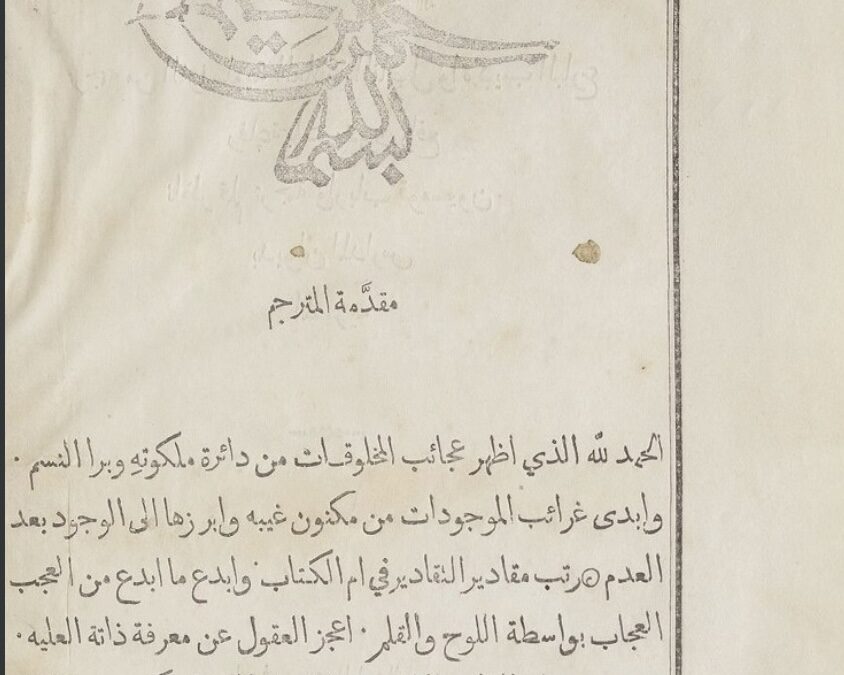 بسم الله
مقدَّمة المترجم
الحمد لله الذي اظهر عجائب المخلوقات من دائرة ملكوتهِ وبرا النسم ·
وابدى غرائب الموجودات من مكنون غيبه وابرزها الى الوجود بعد
العدم ۞ رتب مقادير التقادير في ام الكتاب · وابدع ما ابدع من العجب
العجاب بواسطة اللوح والقلم · اعجز العقول عن معرفة ذاتة العليه ·